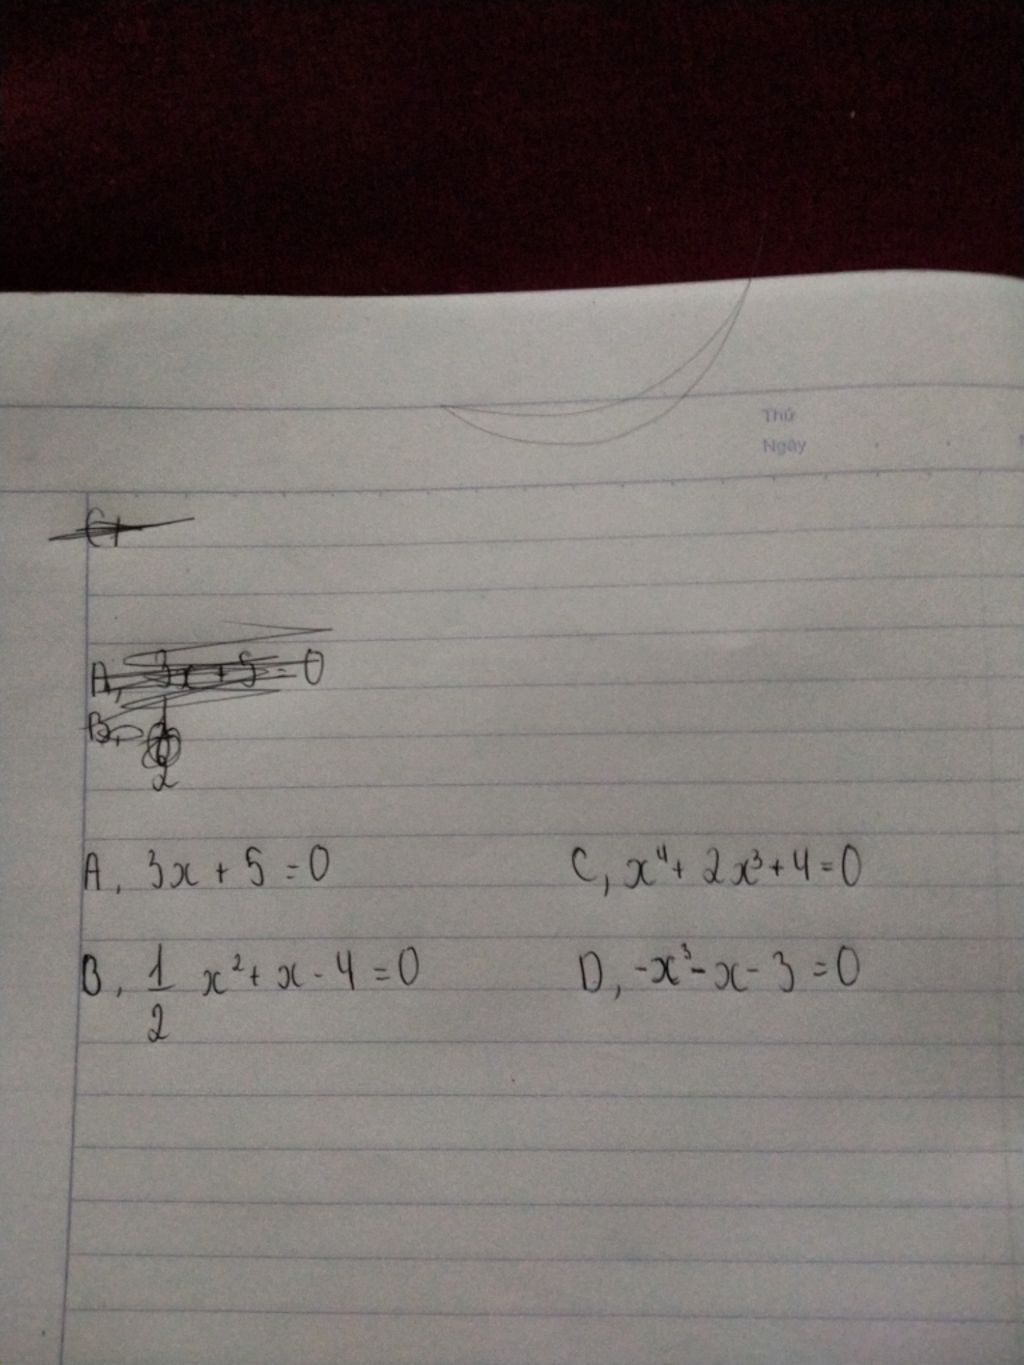 Thứ
Ngày
A, 3x + 5 = 0
A, 3x + 5 = 0
C, x⁴ + 2x³ + 4 = 0
B, 1/2 x² + x - 4 = 0
D, -x³ - x - 3 = 0